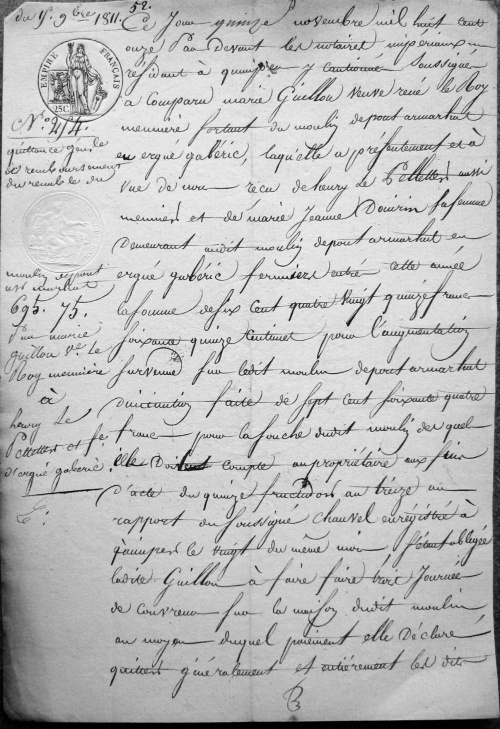 du 15 9bre 1811.
52.
Ce Jour quinze novembre mil huit cent
onze Par devant les notaires impériaux
résidant à quimper y soussignés
a Comparu marie Guillou veuve rené le Roy
meunière sortant du moulin de pont armarhat
en ergué gabéric, laquelle a présentement et à
vue de nous recu de henry Le Pellettes aussi
meunier et de marie Jeanne Dourin sa femme
Demeurant audit moulin de pont armarhat en
ergué gabéric fermiers entrés cette année
la somme de six cent quatre vingt quinze franc
soixante quinze centimes pour l'augmentation
survenue sur ledit moulin de pont armarhat
Déduction faite de sept cent soixante quatre
franc pour la souche dudit moulin des quels
elle Doit compte au propriétaire aux fins
D'acte du quinze fructidor an treize au
rapport du soussigné chauvel enregistré à
quimper le vingt du même mois s'étant obligée
ladite Guillou à faire faire huit Journées
de couvreur sur la maison dudit moulin
au moyen duquel paiement elle Déclare
quitter généralement et entièrement les dits
EMPIRE FRANÇAIS
25C.
N° 414.
quittance gén.le
de remboursement
du remble du
moulin de pont
ar marhat
695. 75.
Par marie
guillou Ve. Le
Roy meunière
à
henry Le
Pellettes et fe.
d'ergué gabéric.